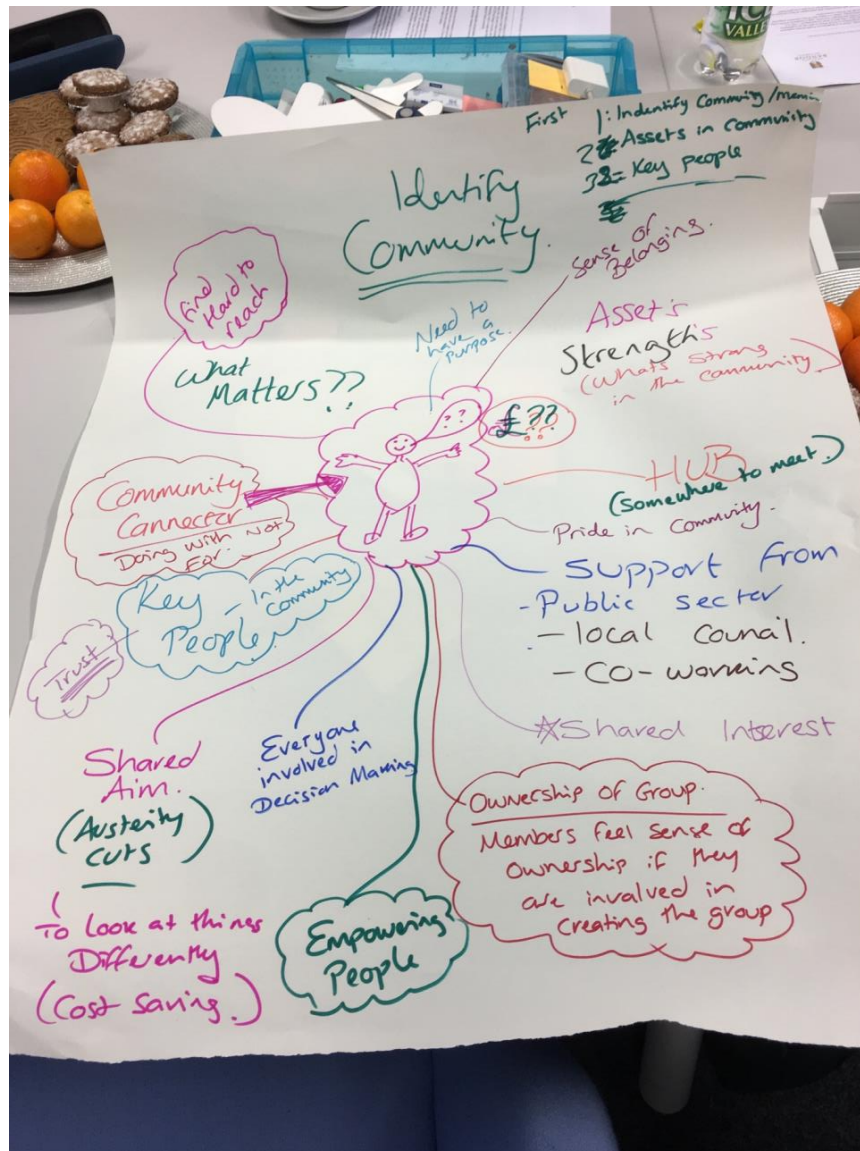 VALLE
First
1: Indentify Community /
2 Assets in Community
3 = Key people
Identify
Community.
Sense of
Belonging.
Find
Hard to
reach
What
Matters??
Need to
have a
Purpose.
Assets
Strengths
(Whats Strong
in the community)
? ?
£ ??
HUB
(Somewhere to meet.)
Pride in Community.
Community
Cannecter
Doing With Not
For.
Key
People
- In the
community
Trust
Support From
- Public sector
- local Council.
- CO-working
Shared Interest
Shared
Aim.
(Austerity
Cuts)
Everyone
involved in
Decision Making
Ownership of Group.
Members Feel Sense of
Ownership if they
are involved in
Creating the group
To Look at things
Differently
(Cost Saving.)
Empowering
People